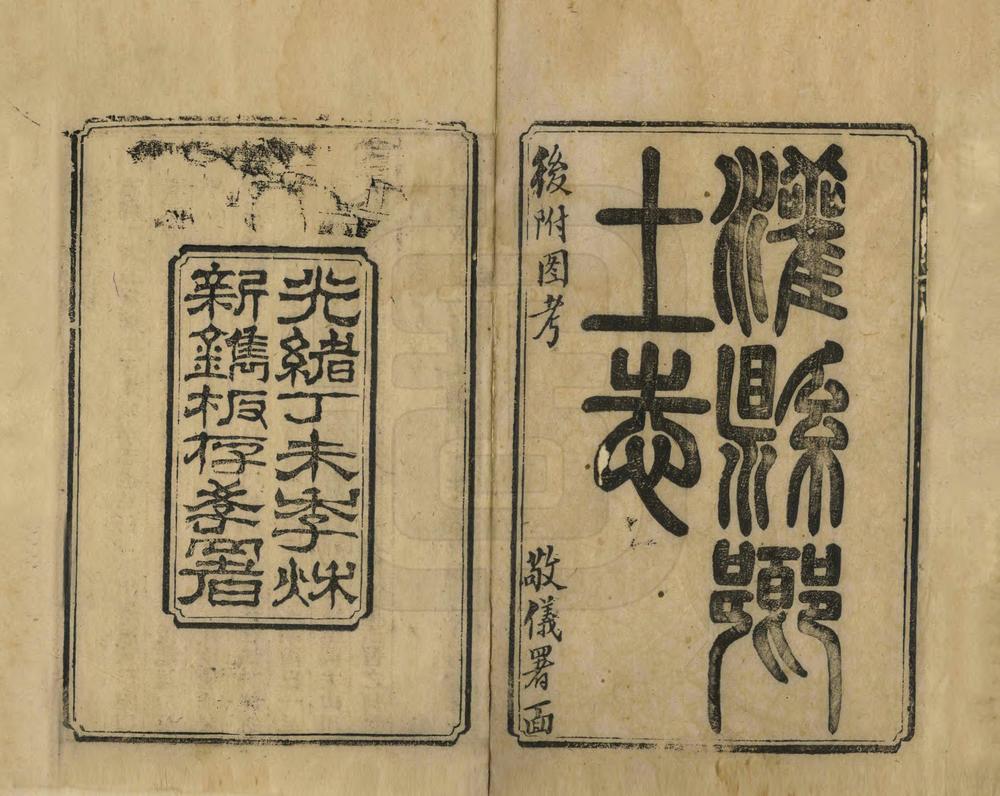 灌縣鄉
土志
後附图考
敬儀署面
光緒丁未季秌
新鐫板存斈署